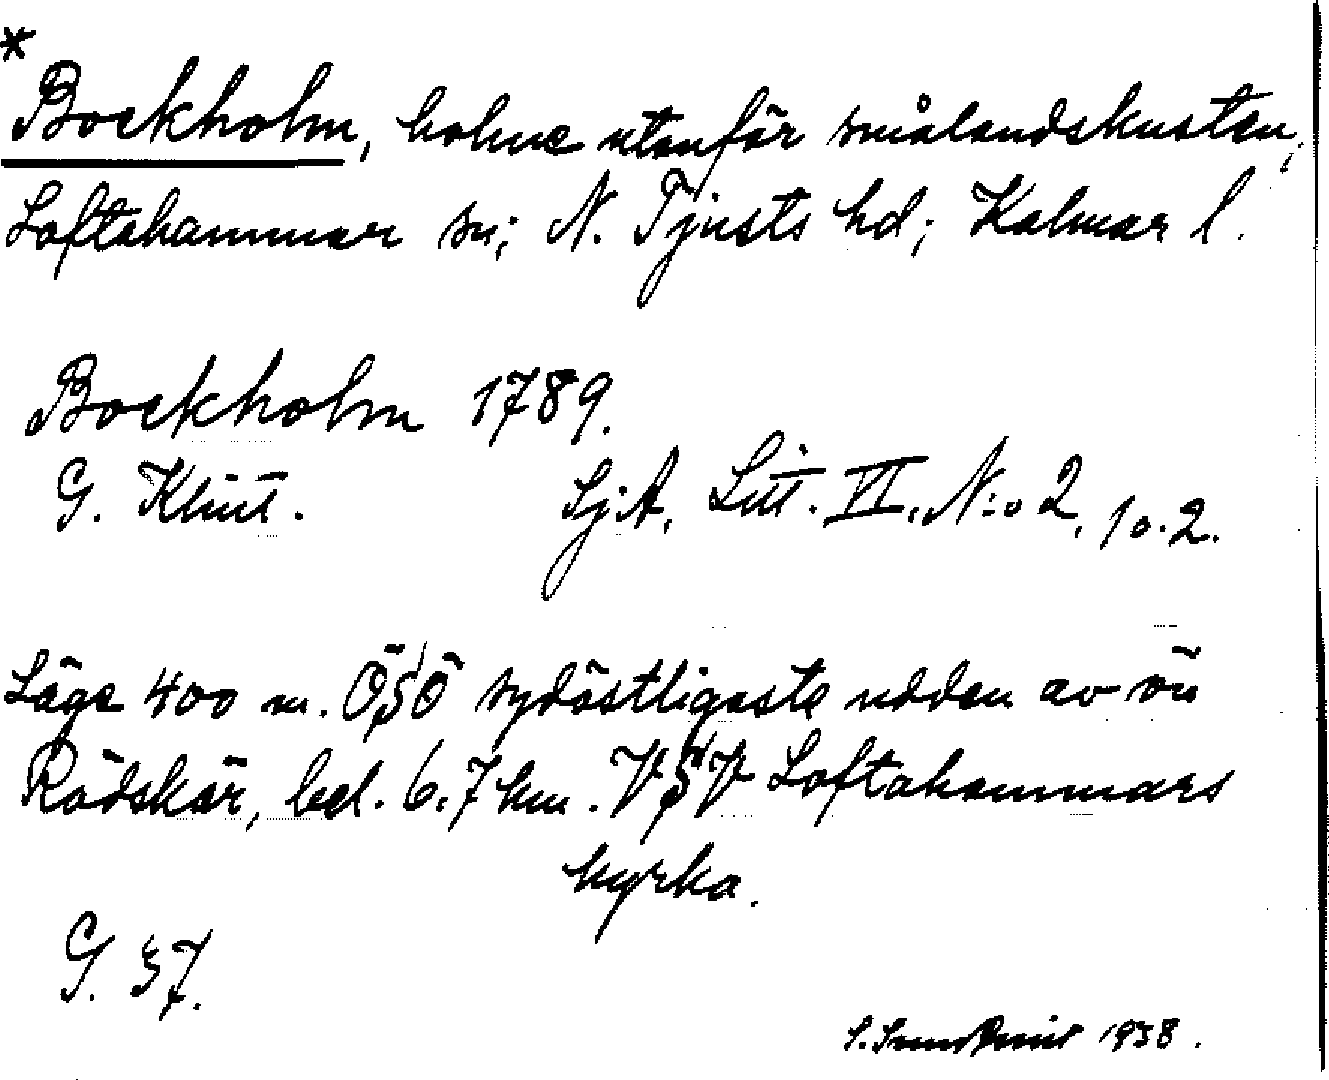 *
Bockholm, holme utanför smålandskusten,
Loftahammar sn; N. Tjusts hd; Kalmar l.
Bockholm 1789.
G. Klint. Sj.A, Litt. VI, N:o 2, 10.2.
Läge 400 m. ÖSÖ sydöstligaste udden av ön
Rödskär, bel. 6.7 km. VSV Loftahammars
kyrka.
G. 37.
1938.